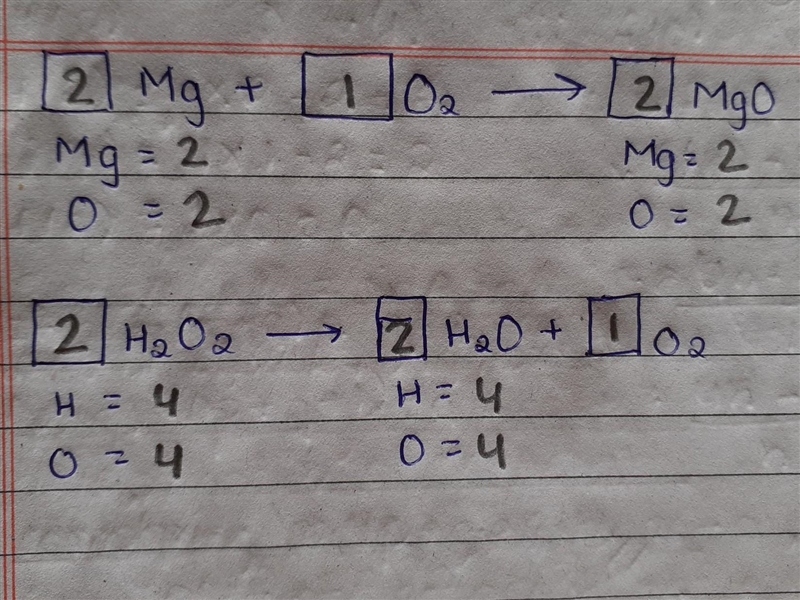 2 Mg + 1 O₂ → 2 MgO
Mg = 2 Mg = 2
O = 2 O = 2
2 H₂O₂ → 2 H₂O + 1 O₂
H = 4 H = 4
O = 4 O = 4